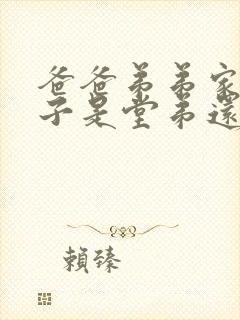 爸爸弟弟家
子是堂弟還
賴臻